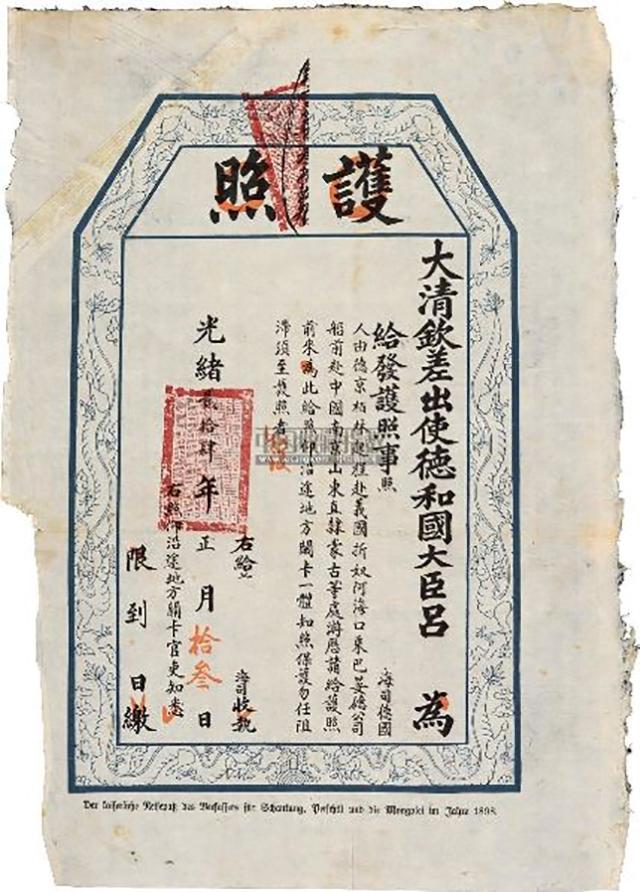 護照
大清欽差出使德和國大臣呂 為
給發護照事照 海司德國
人由德京柏林起程赴義國折奴阿海口乘巴晏德公司
船前赴中國南京山東直隸蒙古等處游歷請給護照
前來為此給照仰沿途地方關卡一體知照保護勿任阻
滯須至護照者
右給 海司收執
光緒貳拾肆年正月拾叁日
右照仰沿途地方關卡官吏知悉
限到 日繳
Der kaiserliche Reisepaß des Verfassers für Schantung, Petschili und die Mongolei im Jahre 1898.